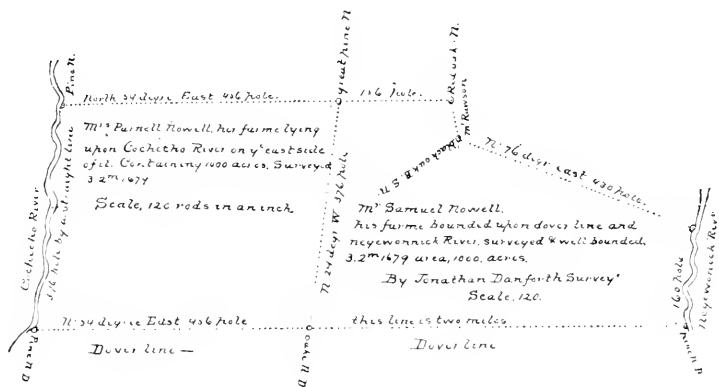 Pine N.
North 34 degre East 436 pole.
great pine N
186 pole.
Red oak. N.
Mr Rawson
black oak B. S. N.
N. 76 degr east 430 pole.
Mrs Parnell Nowell, his farme lying
upon Cochicho River on ye east side
of it. Containing 1000 acres, Surveyed
3. 2m 1679
Scale, 120 rods in an inch
Cochicho River
376 pole by a straight line
N 24 degrs W 376 pole
Mr Samuel Nowell.
his farme bounded upon dover line and
negewonnick River, surveyed & well bounded,
3. 2m 1679 area, 1000. acres.
By Jonathan Danforth Survey
Scale, 120.
160 pole
Negewonick River
N. 34 degre East 436 pole
this line is two miles
Pine N D
Dover line —
oak N D
Dover line